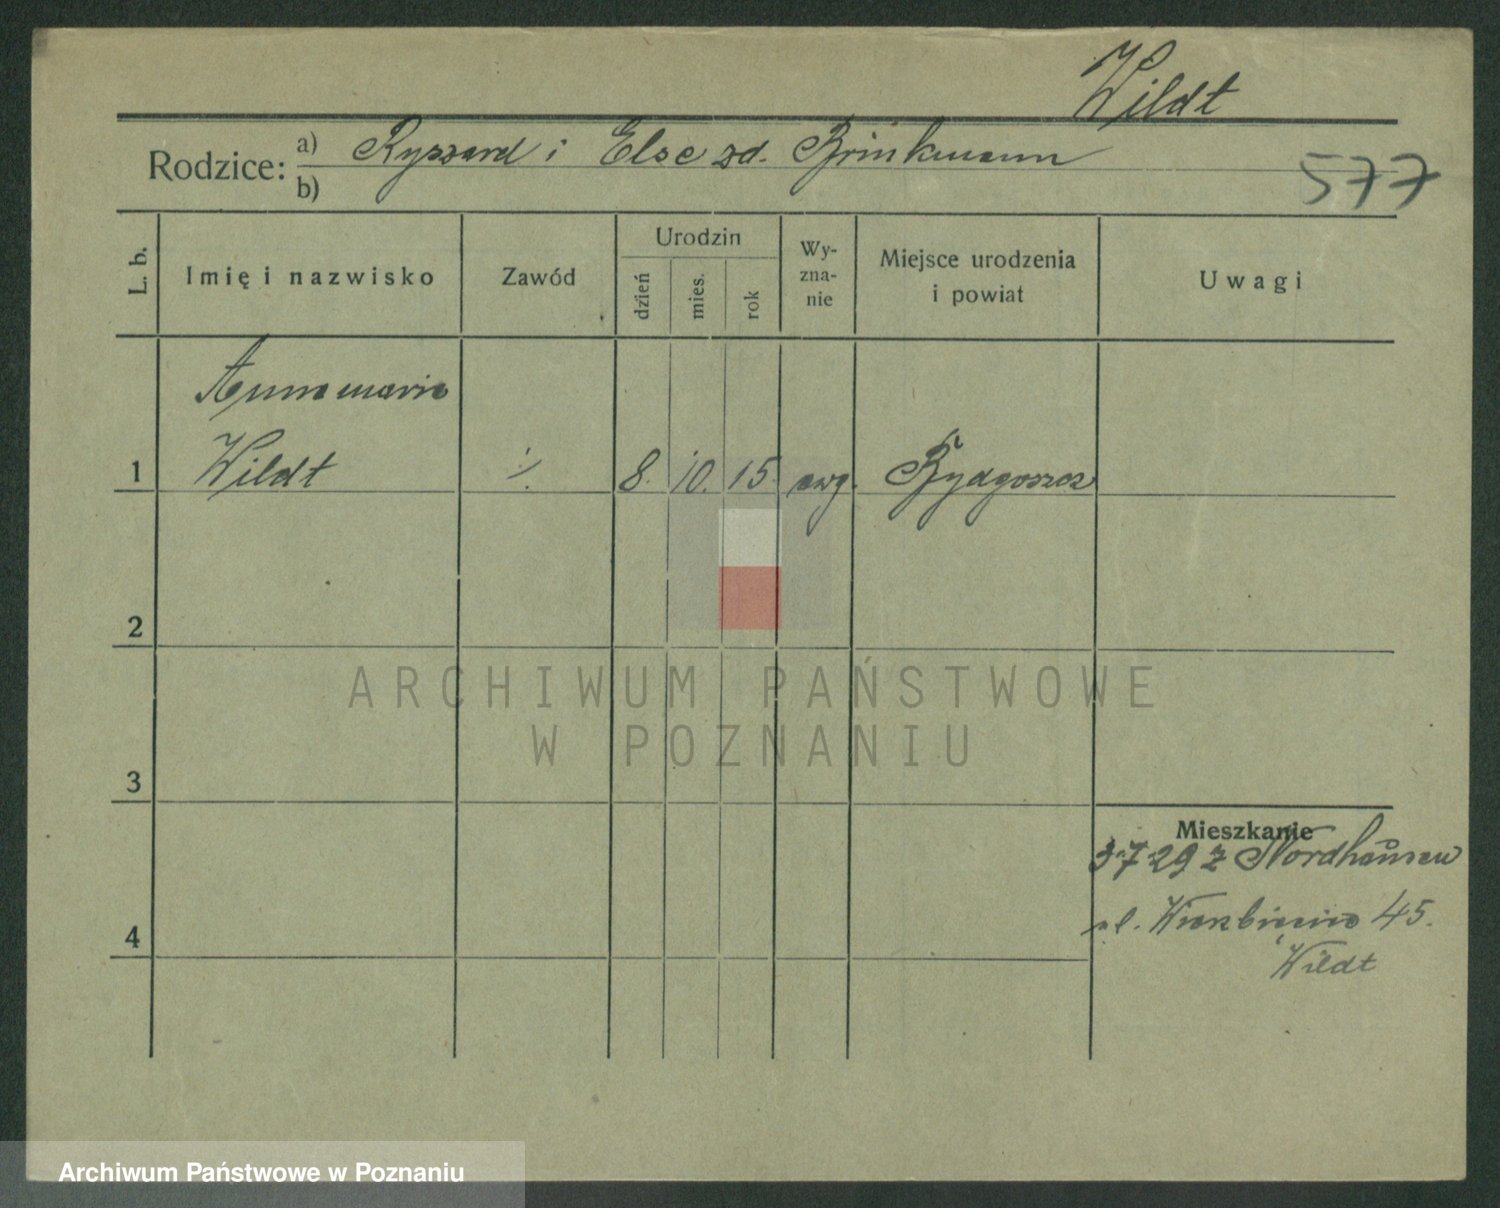 Wildt
Rodzice: a) Ryszard i Else zd. Brinkmann
b)
577
L. b.
Imię i nazwisko
Zawód
Urodzin
dzień
mies.
rok
Wy-
zna-
nie
Miejsce urodzenia
i powiat
Uwagi
Annemarie
1 Wildt ·/. 8. 10. 15. ewg. Bydgoszcz
2
3
4
Mieszkanie
3 7 29 z Nordhausen
ul. Wierzbięcice 45.
Wildt
ARCHIWUM PAŃSTWOWE
W POZNANIU
Archiwum Państwowe w Poznaniu